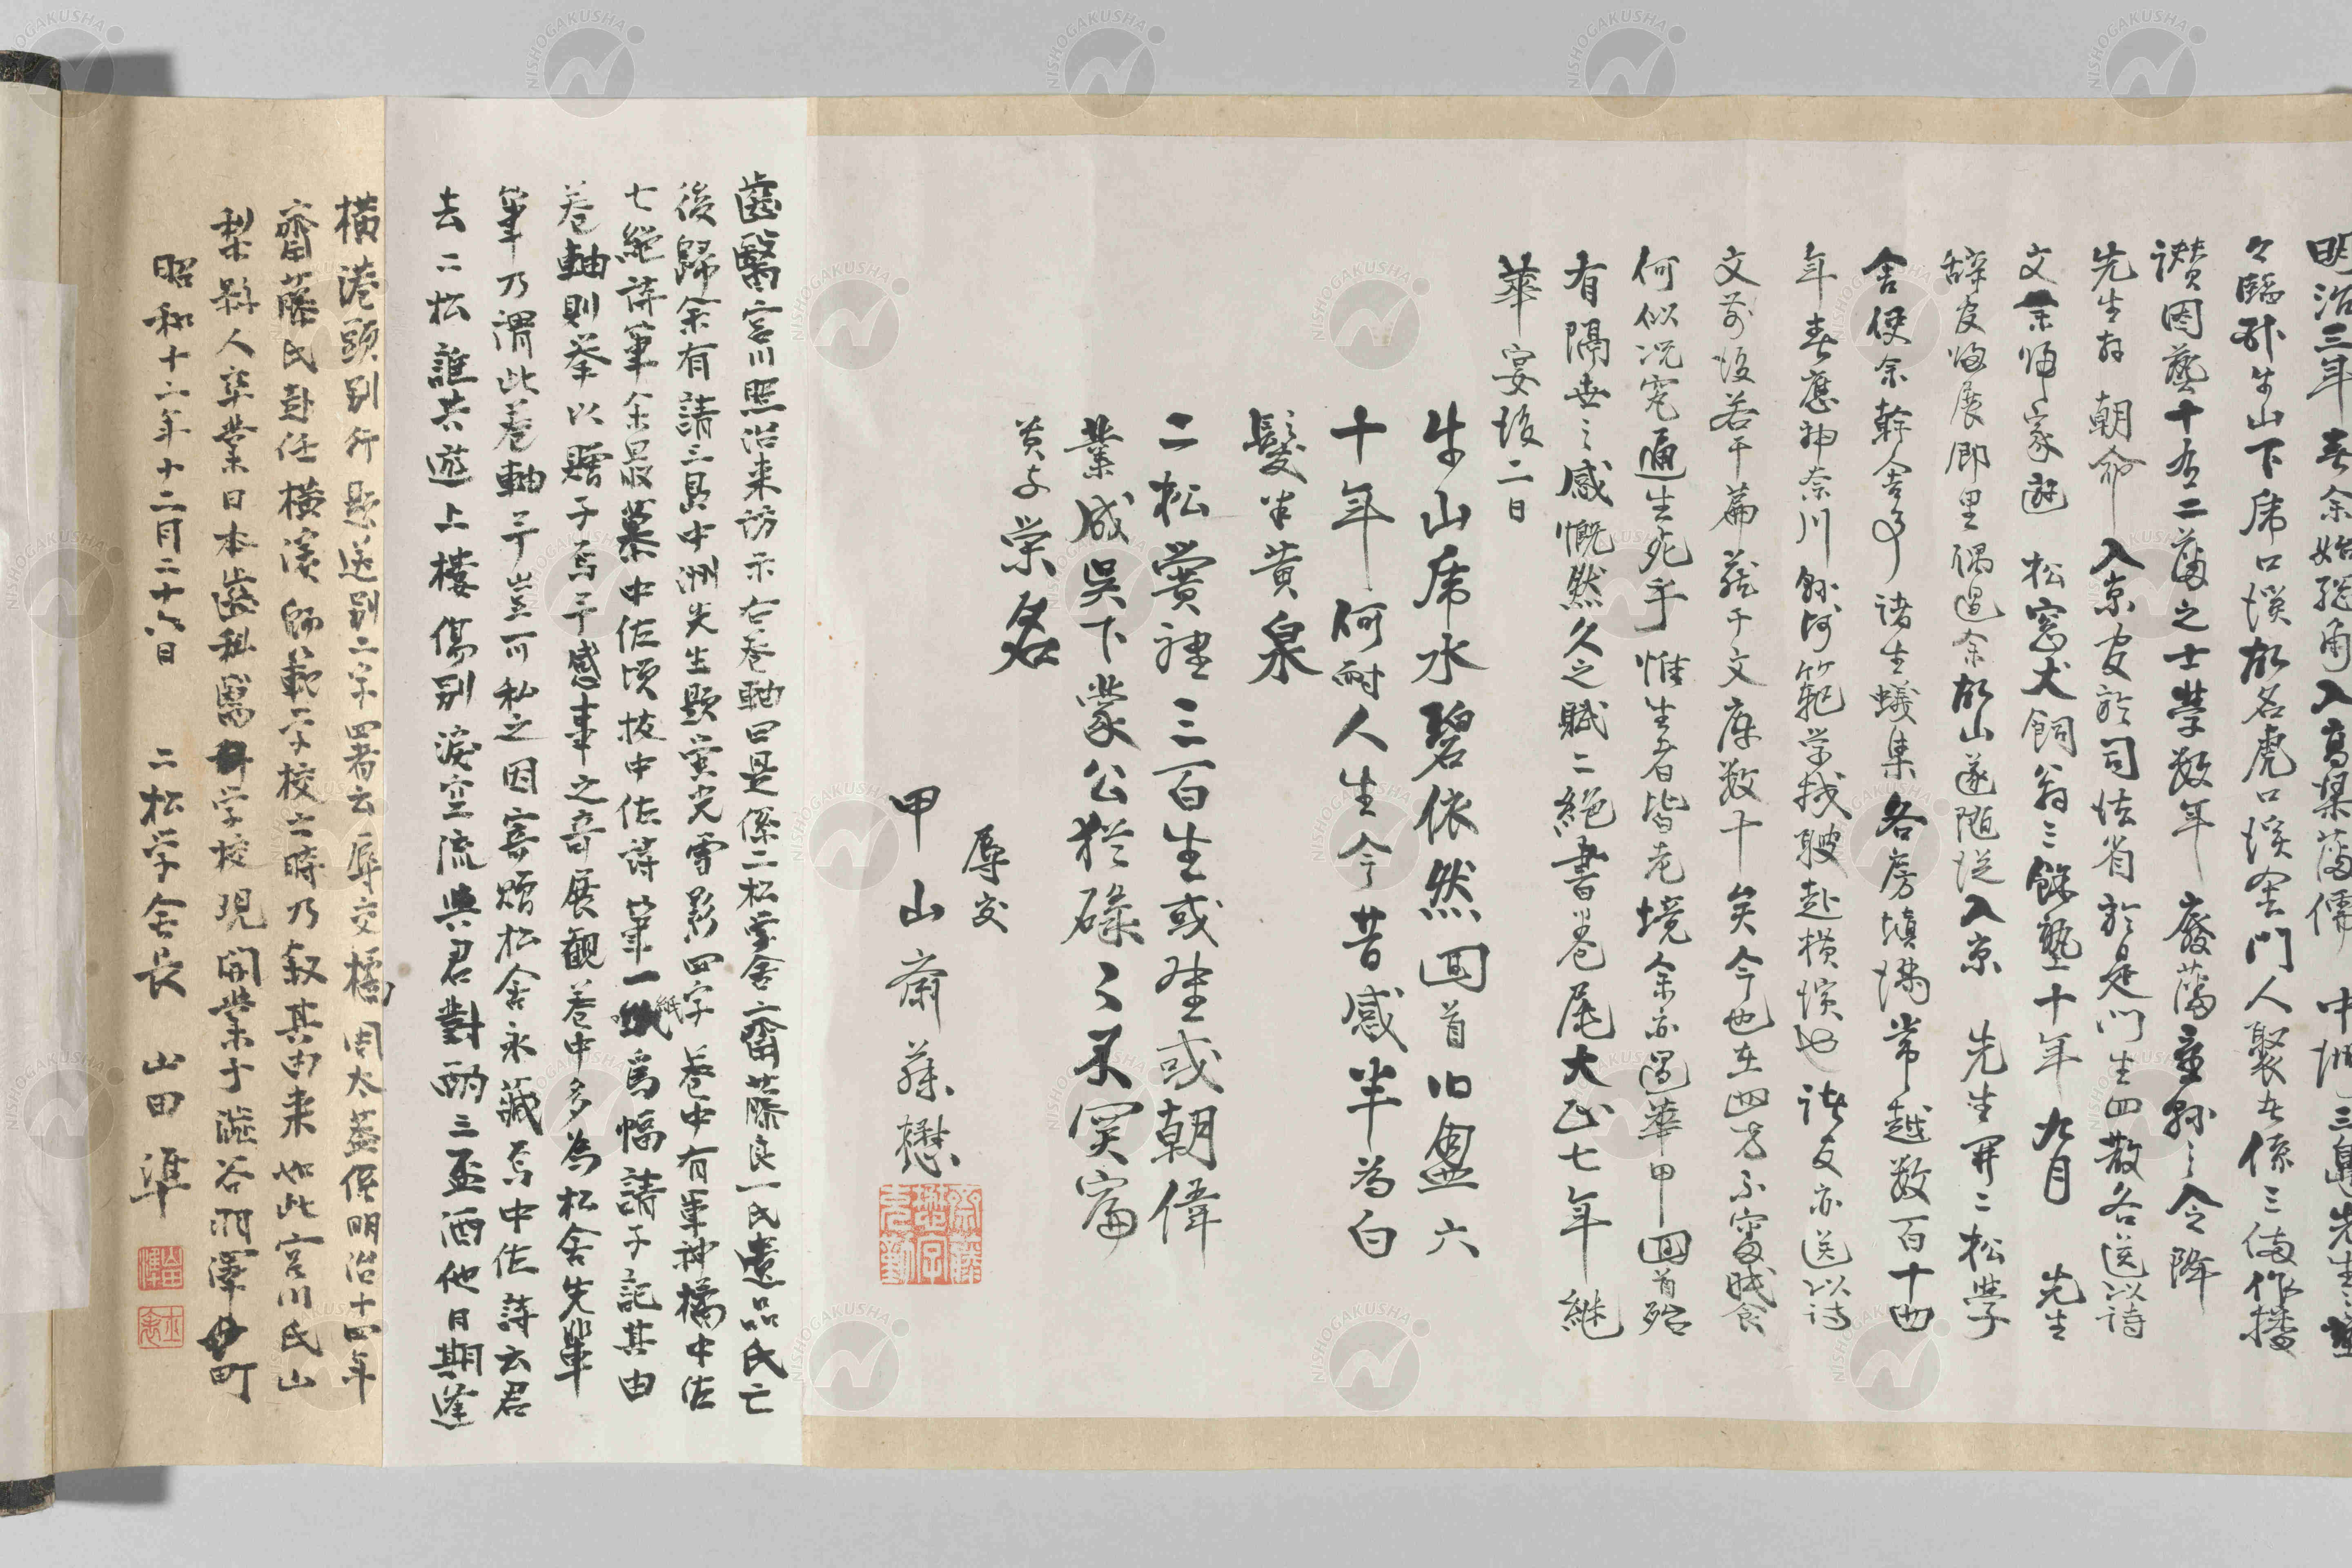 明治三年春余始總角入高梁藩儒中洲三島先生之塾
々臨卧牛山下虎口溪故名虎口溪舍門人聚者係三備作播
讃因藝十有二藩之士學数年廢藩置縣之令降
先生有朝命入京官於司法省於是門生四散各送以詩
文余帰家遊松窓犬飼翁三餘塾十年九月先生
辞官帰展郷里偶過余故山遂随従入京先生開二松學
舍使余幹舍事諸生蟻集各房填満常越数百十四
年春應神奈川縣師範学校聘赴横濱也諸友亦送以詩
文前後若干篇蔵于文庫数十矣今也在四方不寧眠食
何似况窮通生死乎惟生者皆老境余亦過華甲回首殆
有隔世之感慨然久之賦二絶書巻尾大正七年継
華宴後二日
牛山虎水碧依然回首旧盟六
十年何耐人生今昔感半為白
髮半黄泉
二松黌裡三百生或野或朝偉
業成吴下蒙公猶碌々不関富
貴与榮名
辱交
甲山齋藤懋
齒醫宮川照治来訪示右巻軸曰是係二松學舍齋藤良一氏遺品氏亡
後歸余有請三島中洲先生題螢光雪影四字巻中有軍神橘中佐
七絶詩筆余最慕中佐頃技中佐詩筆一紙爲幅請予記其由
巻軸則挙以贈予焉予感事之奇展観巻中多為松舍先輩
筆乃謂此巻軸予豈可私之因寄贈松舍永藏焉中佐詩云君
去二松誰共遊上樓傷別淚空流與君對酌三盃酒他日期逢
横港頭別行題送別二字四者云辱交橘周太蓋係明治十四年
齋藤氏赴任横濱師範学校之時乃叙其由来如此宮川氏山
梨縣人卒業日本齒科醫学校現開業于澁谷羽澤町
昭和十二年十二月二十八日 二松学舍長 山田準